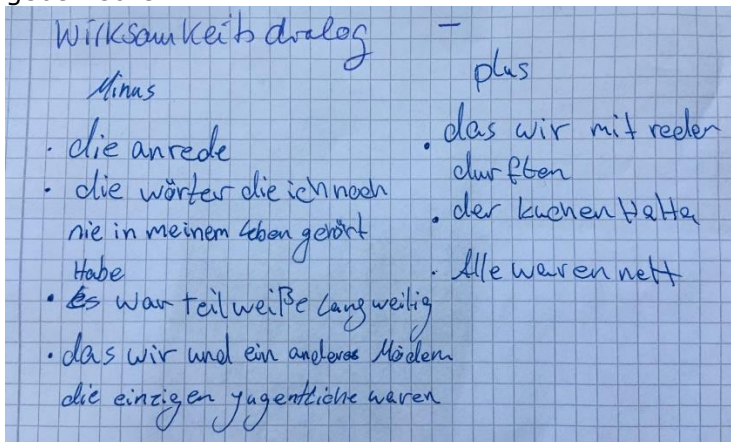 Wirksamkeitsdialog –
Minus
· die anrede
· die wörter die ich noch
nie in meinem Leben gehört
Habe
· es war teilweiße langweilig
· das wir und ein anderes Mädchen
die einzigen jugentliche waren
plus
· das wir mit reden
durften
· der kuchen HaHa
· Alle waren nett